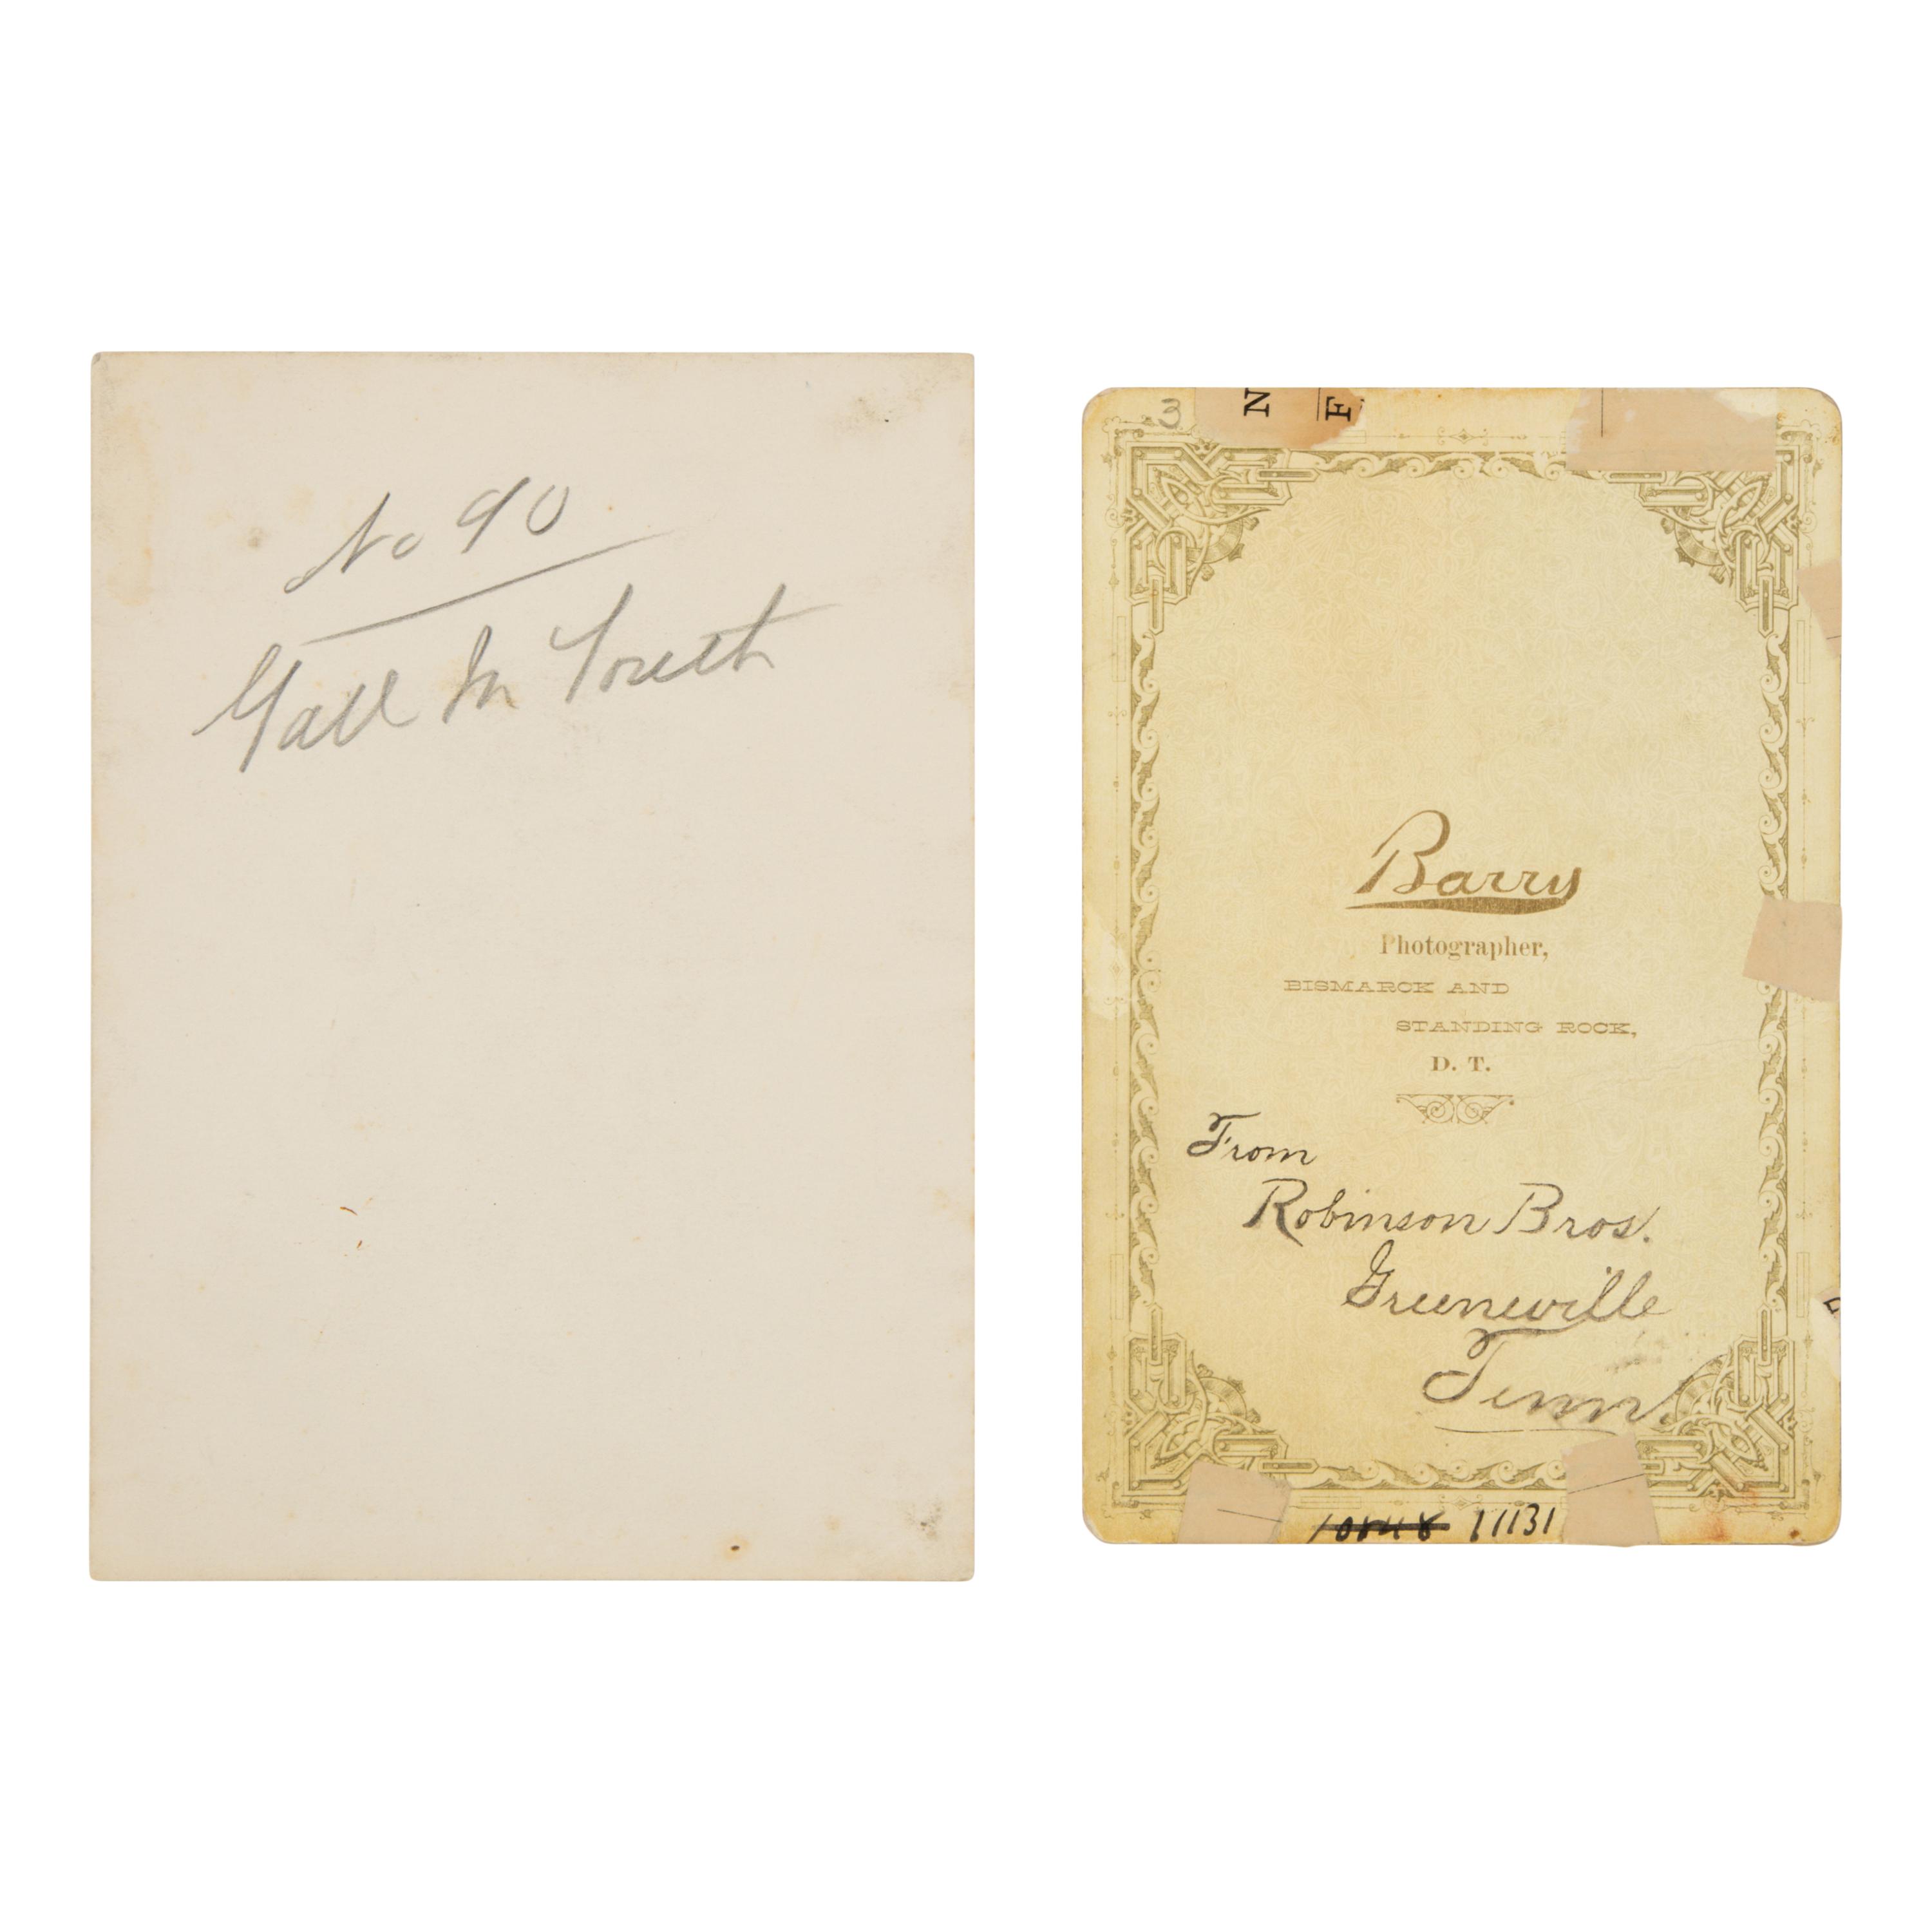 No 90
Gall In Youth
3
N
F
Barry
Photographer,
BISMARCK AND
STANDING ROCK,
D. T.
From
Robinson Bros.
Greeneville
Tenn.
11131